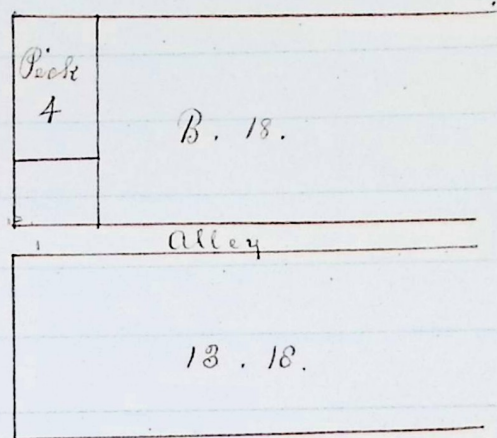 Peck
4
B. 18.
Alley
13. 18.